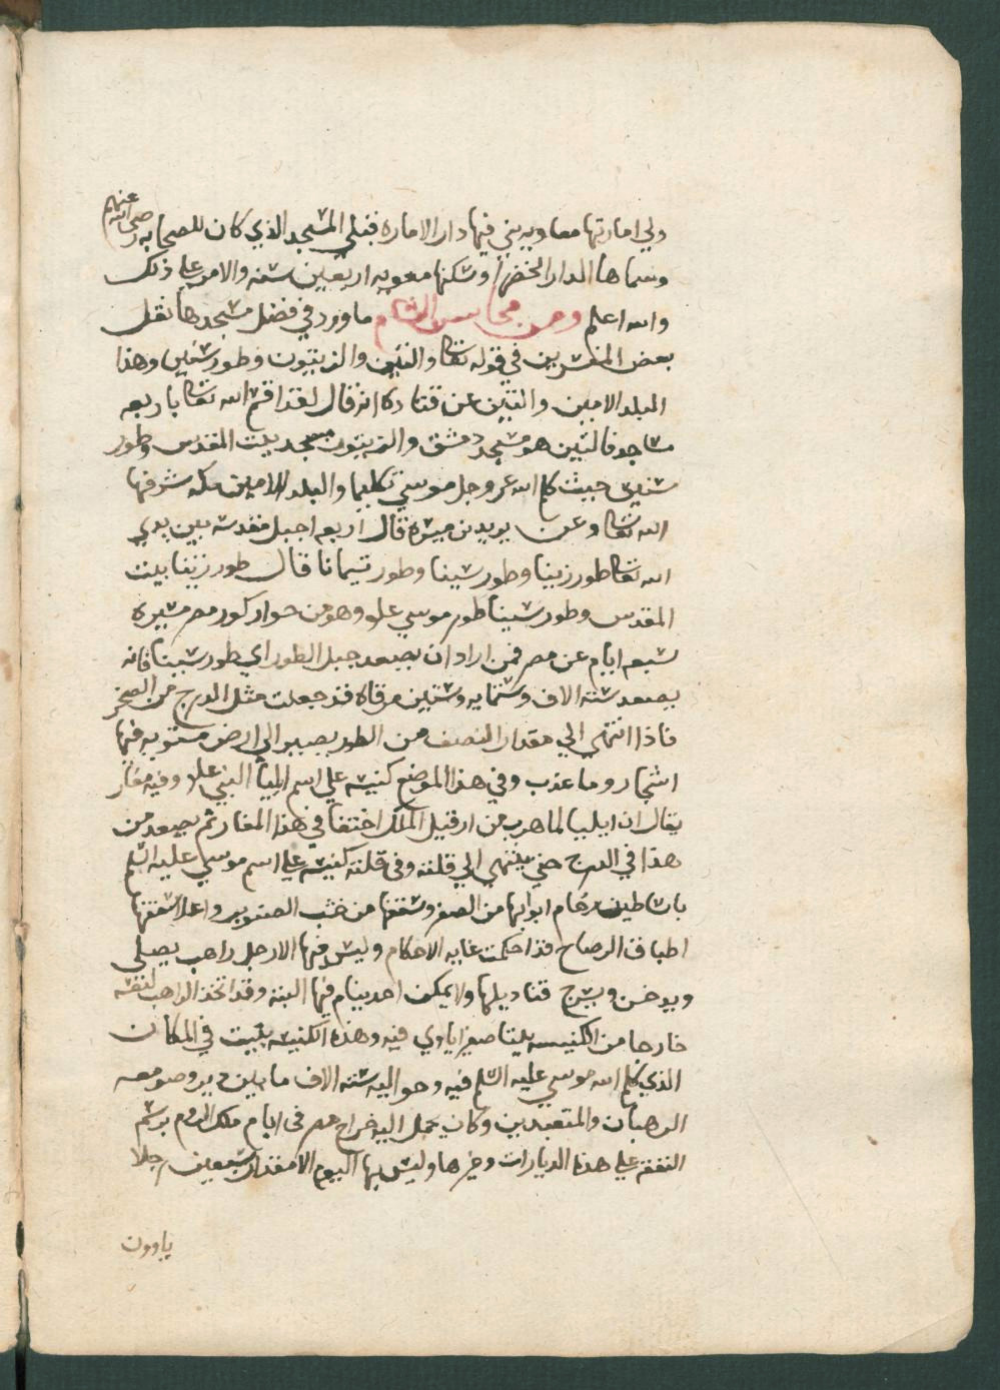 ولي امارتها معاويه بني فيها دار الاماره قبلي المسجد الذي كان للصحابه رضي الله عنهم
وسماها الدار الخضرا وسكنها معويه اربعين سنه والامر علي ذلك
والله اعلم ومن محاسن الشام ما ورد في فضل مسجدها نقل
بعض المفسرين في قوله تعالى والتين والزيتون وطور سنين وهذا
البلد الامين والتين عن قتاده انه قال لقد اقسم الله تعالى باربعه
مساجد فالتين هو مسجد دمشق والزيتون مسجد بيت المقدس وطور
سنين حيث كلم الله عز وجل موسي تكليما والبلد الامين مكه شرفها
الله تعالى وعن يزيد بن ميسره قال اربعه اجبل مقدسه بين يدي
الله تعالى طور زيتا وطور سينا وطور تيمانا قال طور زيتا بيت
المقدس وطور سينا طور موسي وهو من كور مصر مسيره
سبع ايام عن مصر فمن اراد ان يصعد جبل الطور اي طور سينا فانه
يصعد سته الاف وستمايه وستين مرقاه قد جعلت مثل الدرج من الصخر
فاذا انتهي الي مقدار النصف من الطور يصير الي ارض مستويه فيها
اشجار وما عذب وفي هذا الموضع كنيسه علي اسم ايليا النبي وفيه مغار
يقال ان ايليا لما هرب من الملك اختفا في هذا المغار ثم يصعد من
هذا في الدرج حتي ينتهي الي قلته وفي قلته كنيسه علي اسم موسي عليه السلم
باساطين رخام ابوابها من الصفر وسقفها من خشب الصنوبر واعلا سقفها
اطباق الرصاص قد احكمت غايه الاحكام وليس فيها الا رجل راهب يصلي
ويدخن ويسرج قناديلها ولا يمكن احد ينام فيها البته وقد اتخذ الراهب لنفسه
خارجا من الكنيسه بيتا صغيرا ياوي فيه وهذه الكنيسه بنيت في المكان
الذي كلم الله موسي عليه السلم فيه وحواليه سته الاف ما بين دير وصومعه
الرهبان والمتعبدين وكان يحمل اليه خراج مصر في ايام ملك الروم برسم
النفقه علي هذه الديارات وغيرها وليس بها اليوم الا مقدار سبعين رجلا
ياوون